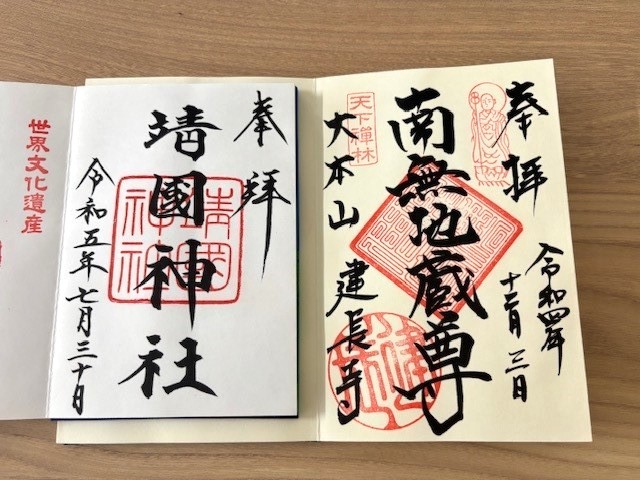 奉拝
南無地蔵尊
天下禅林
大本山 建長寺
令和四年
十二月三日
奉拝
靖國神社
靖国神社
令和五年七月三十日
世界文化遺産